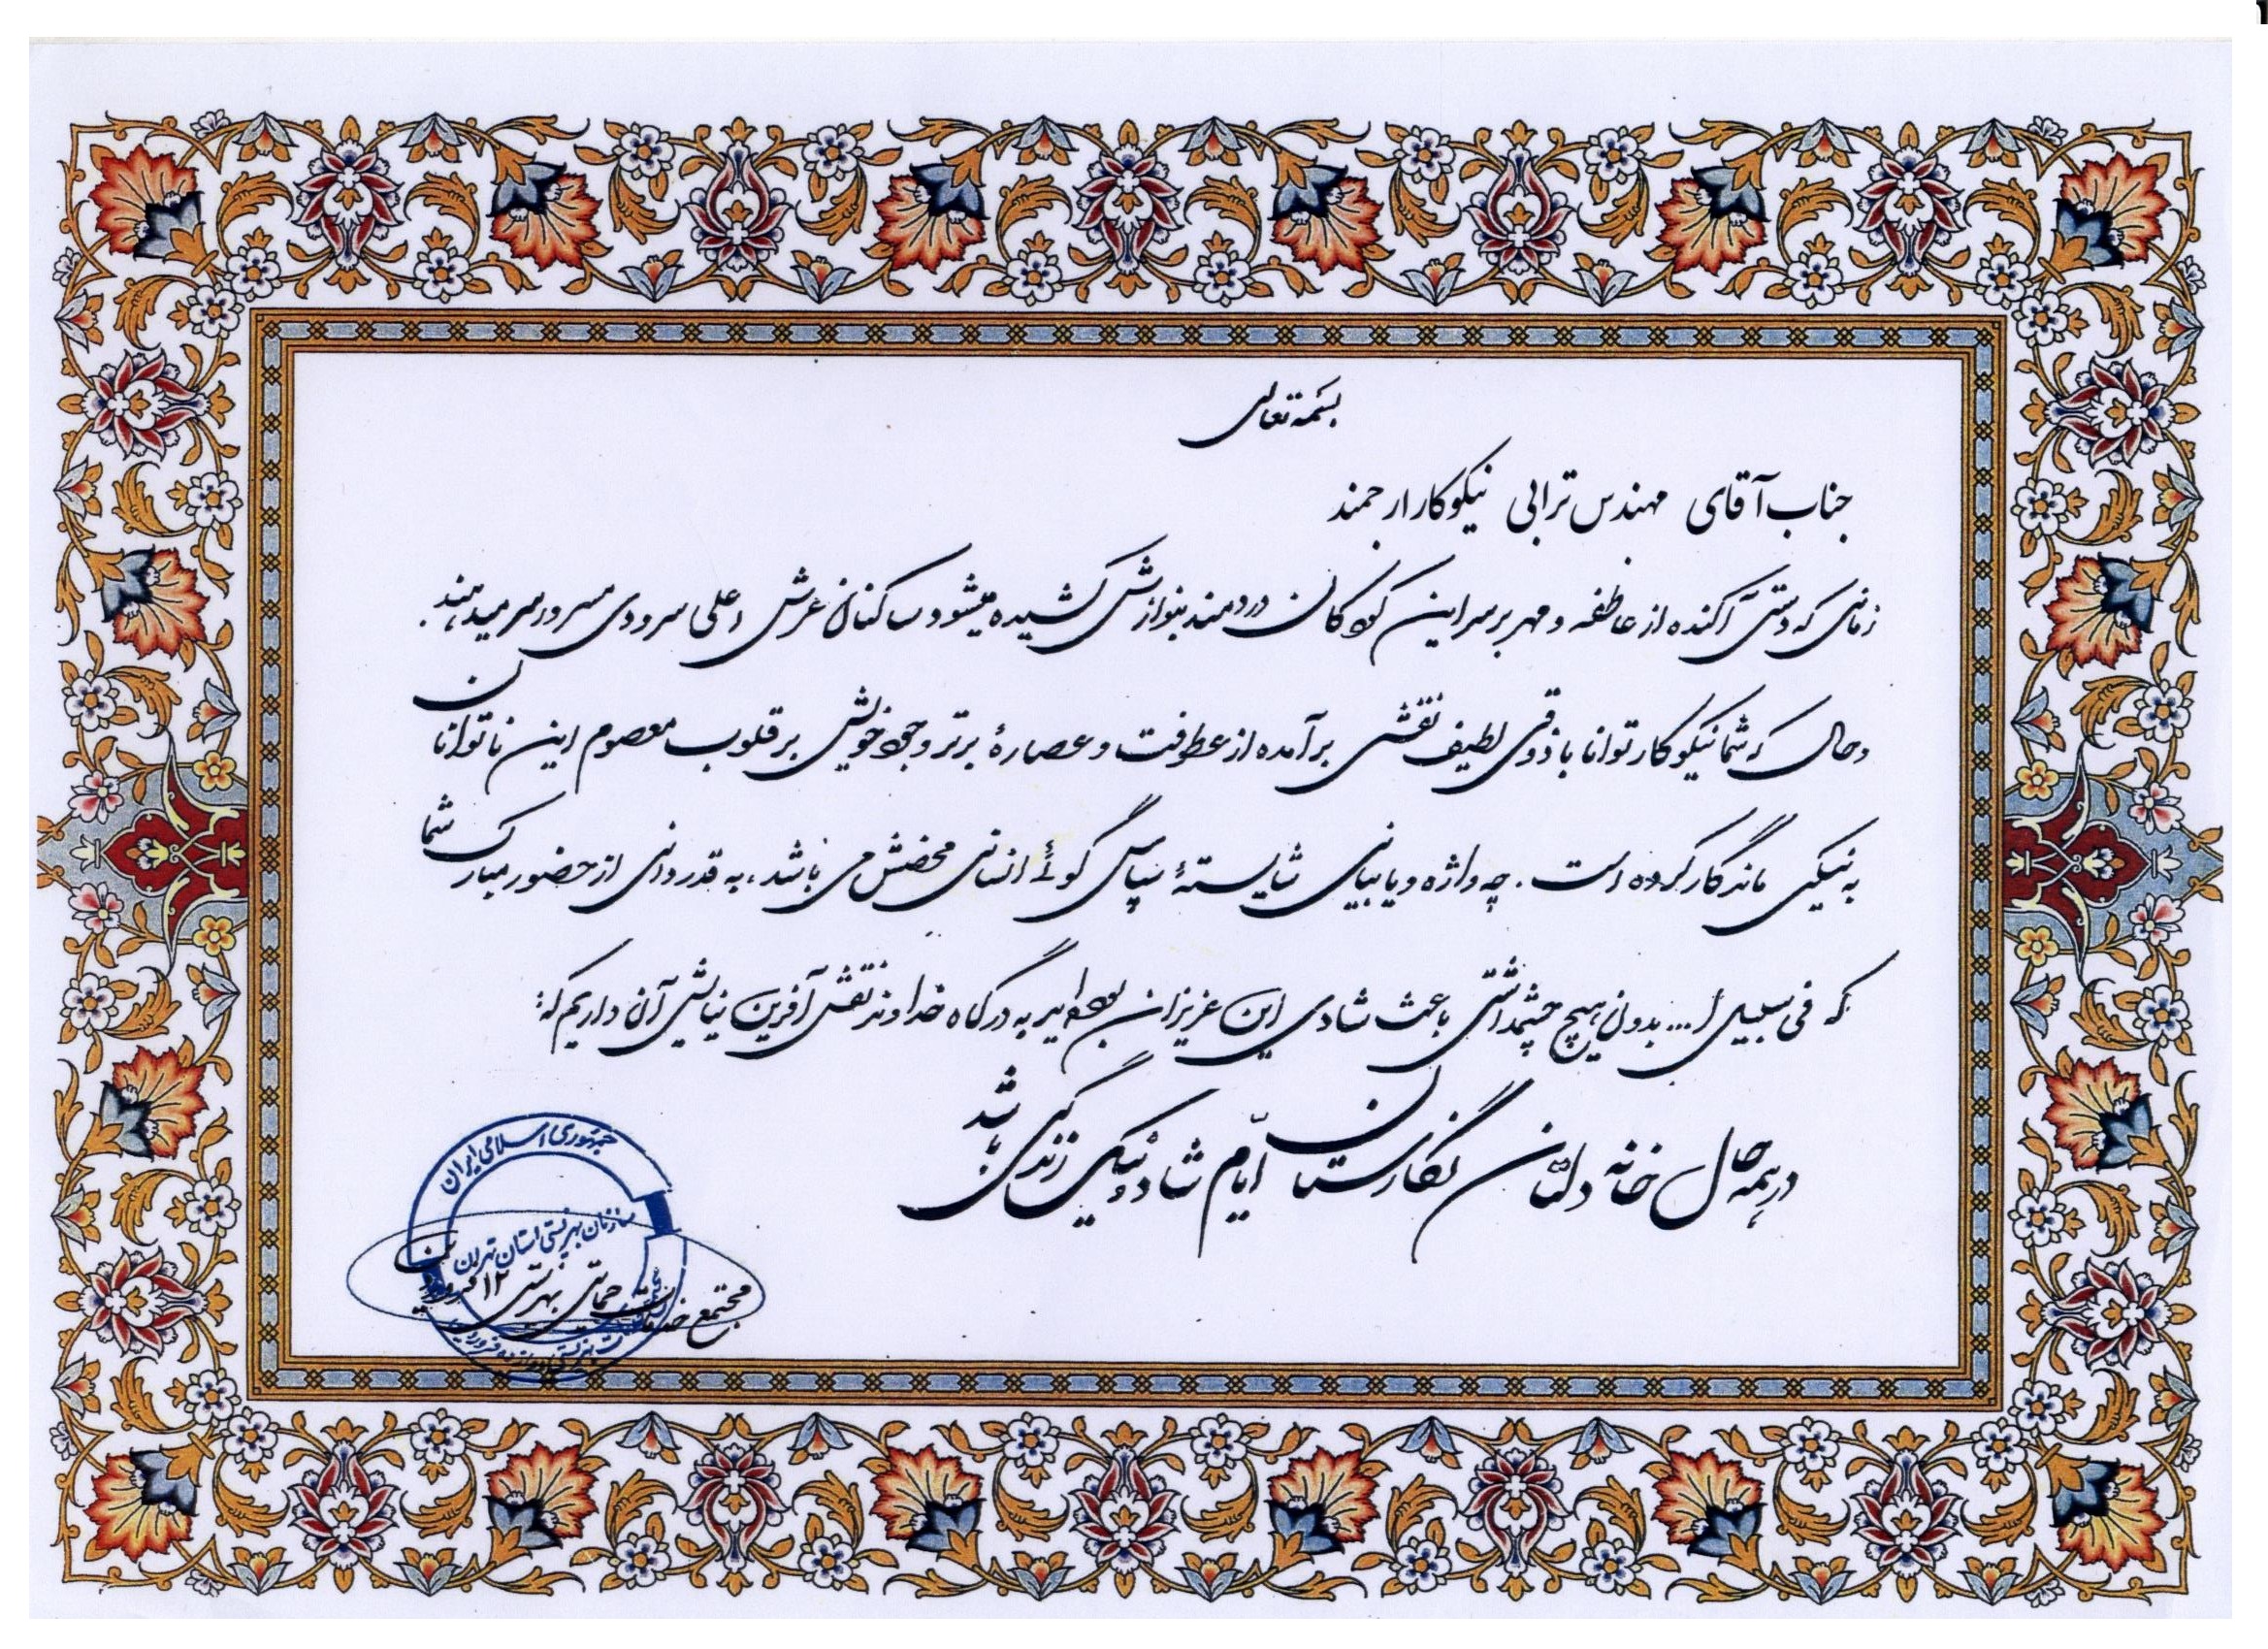 بسمه تعالی
جناب آقای مهندس ترابی نیکوکار ارجمند
زمانی که دستی آکنده از عاطفه و مهر بر سر این کودکان دردمند بنوازش کشیده میشود ساکنان عرش اعلی سرودی مسرور سر میدهند.
و حال که شما نیکوکار توانا با ذوقی لطیف نقشی برآمده از عطوفت و عصارهٔ برتر وجود خویش بر قلوب معصوم این ناتوانان
به نیکی ماندگار کرده است. چه واژه و یا بیانی شایستهٔ سپاس گوئی انسانی محضش می باشد، به قدردانی از حضور مبارک شما
که فی سبیل ا... بدون هیچ چشمداشتی باعث شادی این عزیزان بوده اید به درگاه خداوند نقش آفرین نیایش آن داریم که:
در همه حال خانه دلتان نگارستان ایّام شاد و نیک زندگی باشد
جمهوری اسلامی ایران
سازمان بهزیستی استان تهران
مجتمع خدمات حمایتی بهزیستی ۱۲ فروردین